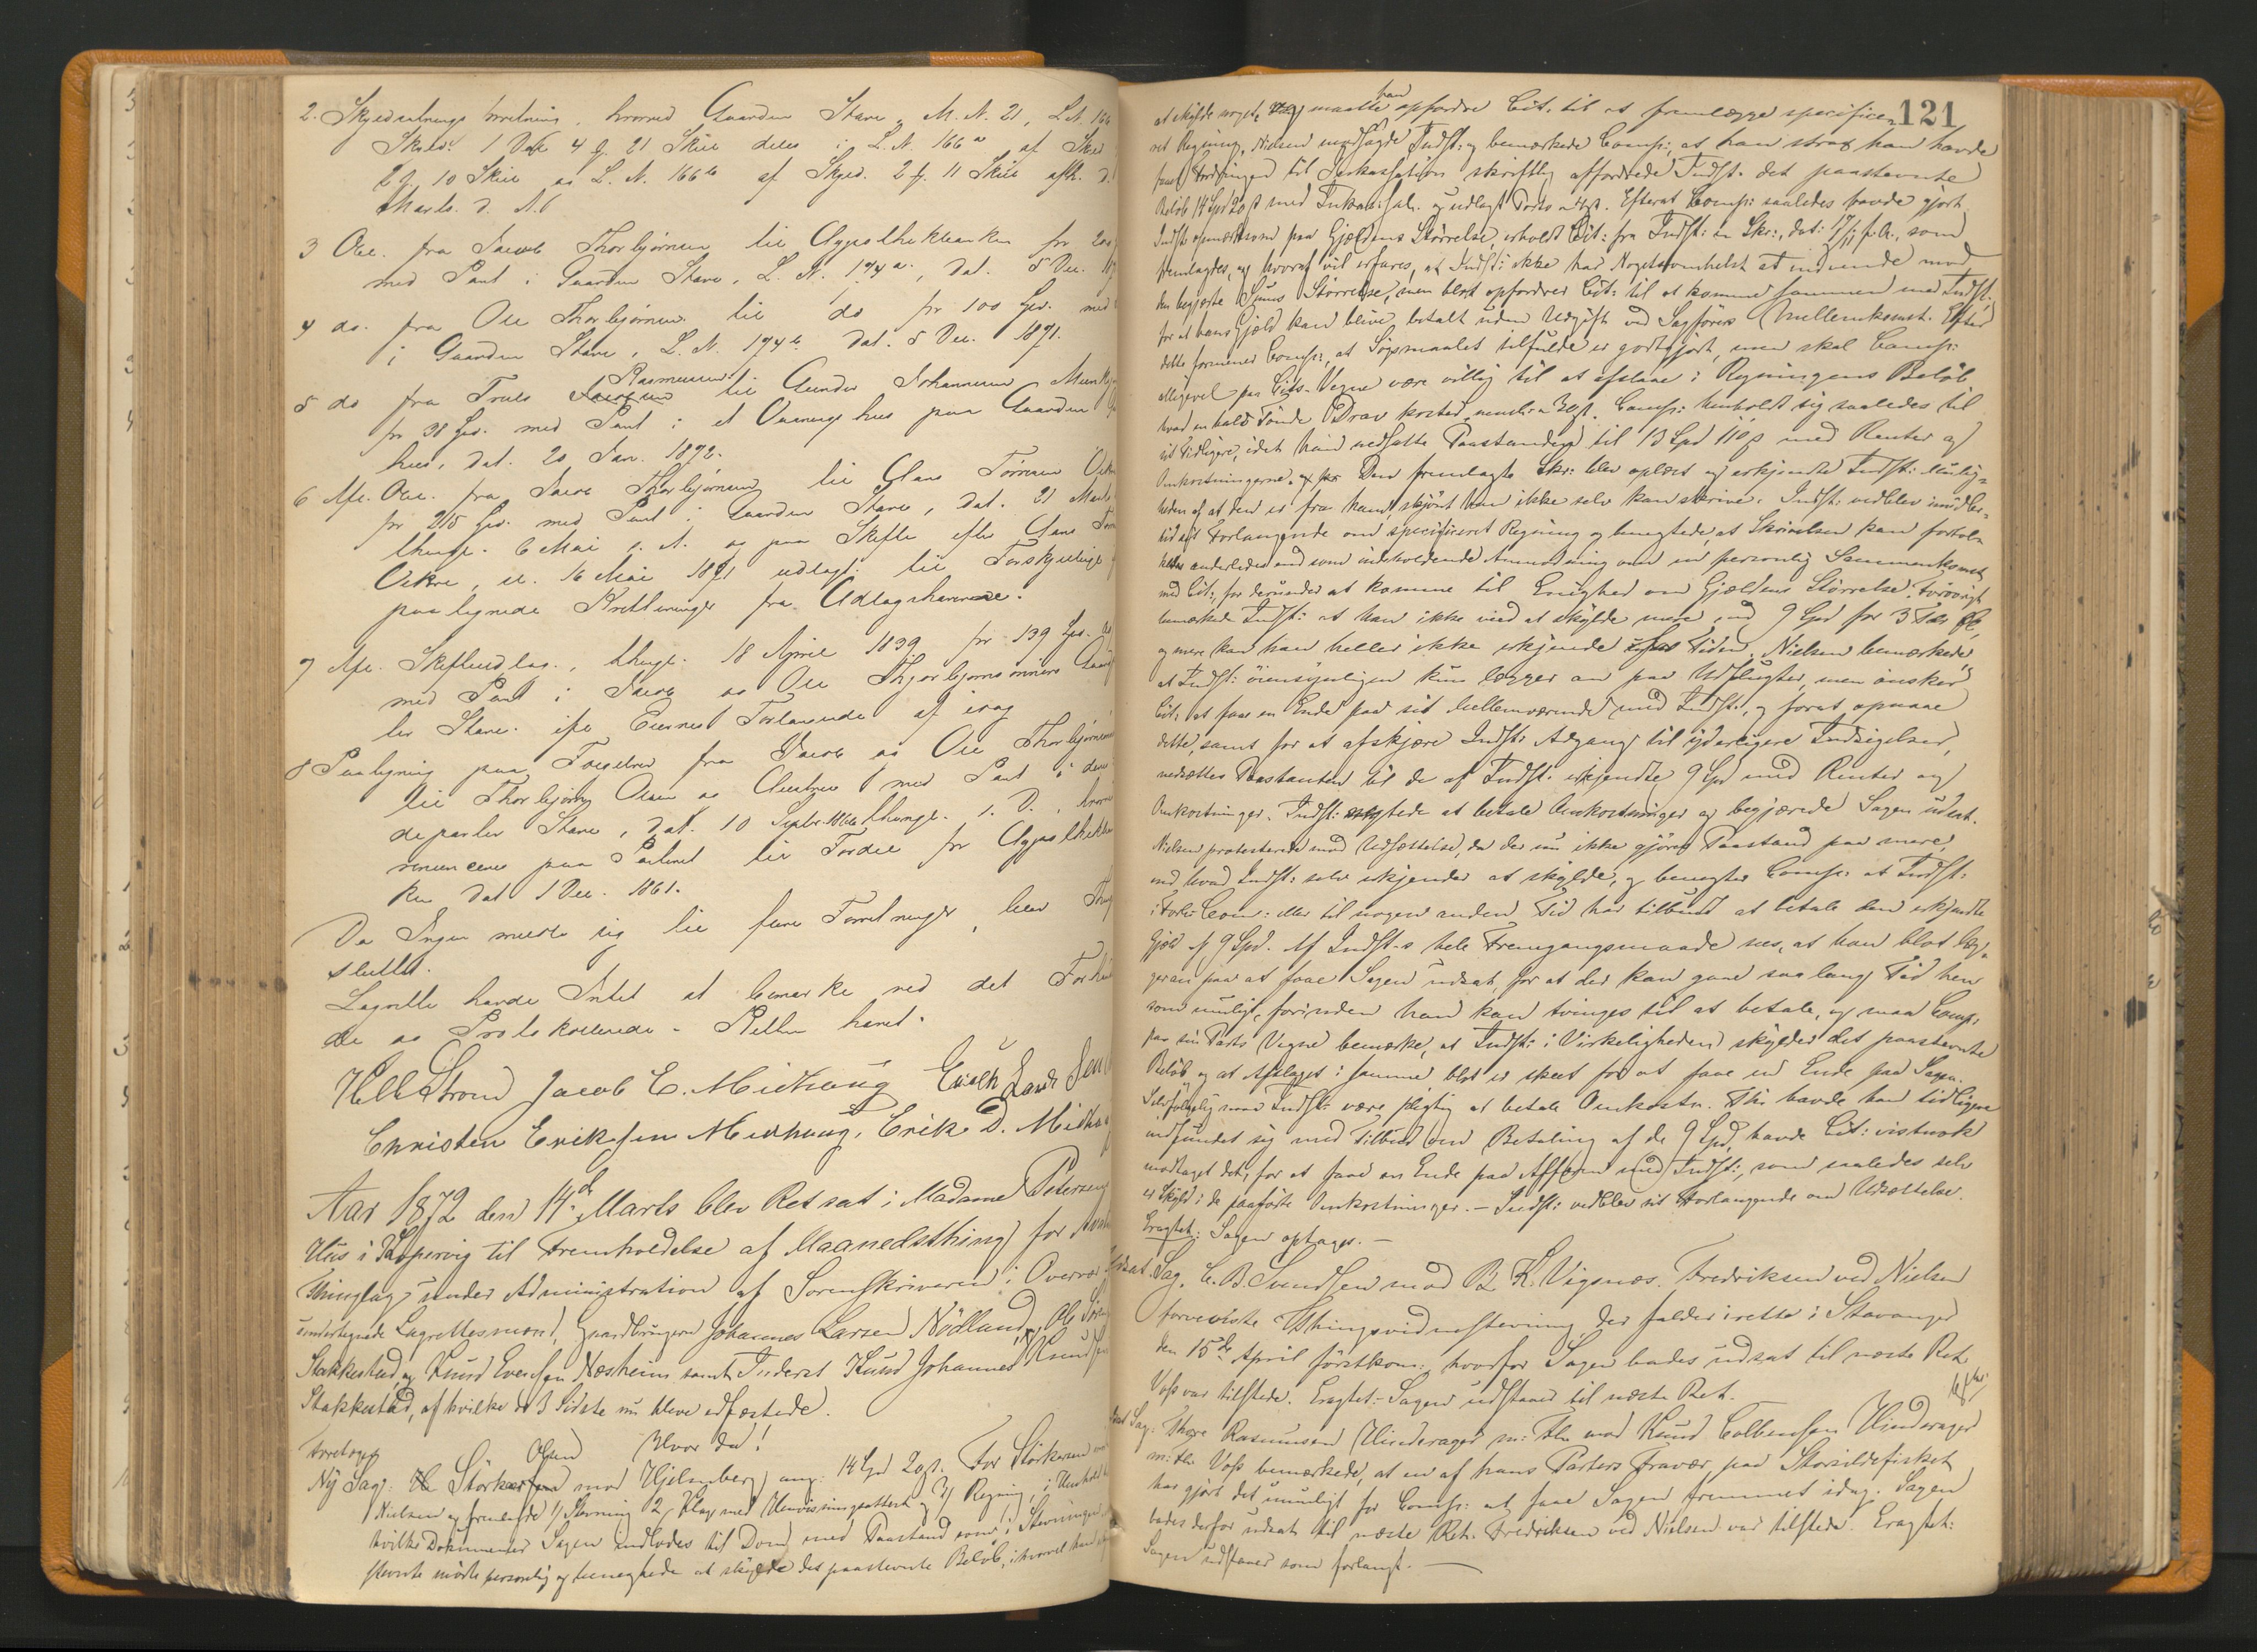 2. Skyldsætnings forretning, hvorved Gaarden Stave, M. N. 21, L.N. 166
Skyld: 1 Dlr 4 ƒ 21 Skill deles i L. N. 166a af Skyld
2 ƒ 10 Skill og L. N. 166b af Skyld. 2 ƒ. 11 Skill afh. d.
Marts. d. A.
3 Obl. fra Jacob Thorbjørnsen til Hypothekbanken for 200
med Pant i Gaarden Stave, L. N. 174a, dat. 5 Dec. 18
4 do. fra Ole Thorbjørnsen til do for 100 Spd. med
i Gaarden Stave, L. N. 174b. dat. 5 Dec. 1871.
5 do fra Truls Rasmussen til Gunder Johannesen Munkej
for 38 Spd. med Pant i et Vaaningshus paa Gaarden
hus, dat. 20 Jan. 1872.
6 Afl. Obl. fra Jacob Thorbjørnsen til Claus Tørresen
for 215 Spd. med Pant i Gaarden Stave, dat. 21 Marts
thingl. 6 Mai s. A. og paa Skifte efter Claus
sl. 16 Mai 1871 udlagt til Forskjellige
paategnede Kvitteringer fra Udlagshaverne.
7 Afl. Skifteudlæg, thingl. 18 April 1839 for 139 Spd.
med Pant i Jacob og Ole Thorbjørnsønners Gaard
ler Stave. ifl Eiernes Forlangende af idag
8 Paategning paa Føderaad fra Jacob og Ole Thorbjørnsen
til Thorbjørn Olsen og Hustru med Pant i deres
departer Stave, dat. 10 Septbr. 1866 thingl. s. D., hvorved
renunceres paa Panteret til Fordel for Hypothekban
ken dat 1 Dec. 1861.
Da Ingen meldte sig til flere Forretninger, blev Thing
sluttet.
Lagrette havde Intet at bemærke ved det Forhand
lede og Protokollerede. Retten hævet.
Strøm Jacob E. Midhaug
Christen Eriksen Midhaug. Erik D. Midhaug
Aar 1872 den 14de Marts blev Ret sat i Madame Petersens
Hus i Kopervig til Fremholdelse af Maanedsthing for
Thinglag under Administration af Sorenskriveren i Overvær
undertegnede Lagrettesmænd, Gaardbrugere Johannes Larsen Nødland, Ole
Stakkestad, og Knud Evensen Næsheim samt Inderst Knud Johannes Knudsen
Stakkestad, af hvilke de 3 Sidste nu bleve edfæstede.
Foretoges Hvor da!
Ny Sag: Størkersen Olsen mod Hjelmberg ang. 14 Spd 20 ß. For Størkersen
Nielsen og fremlagde 1/ Stevning 2/ Klag med Henvisningsattest og 3/ Regning, i Henhold
hvilke Dokumenter Sagen indlodes til Dom med Paastand som i Stevningen.
stevnte mødte personlig og benegtede at skylde det paastevnte Beløb, i hvorvel han
121
at skylde noget, maatte han opfordre Cit. til at fremlægge specifice-
ret Regning. Nielsen modsagde Indst: og bemærkede Comp:, at han strax han havde
faaet Fordringen til Inkassation skriftlig affordrede Indst. det paastevnte
Beløb 14 Spd 20 ß med Inkas: sal. og udlagt Porto. Efterat Comp: saaledes havde gjort
Indst opmærksom paa Gjældens Størrelse, erholdt Cit: fra Indst: en Skr:, dat: 17/11 f. A., som
fremlagdes, og hvoraf vil erfares, at Indst: ikke har Nogetsomhelst at indvende mod
den begjærte Sums Størrelse, men blot opfordrer Cit: til at komme sammen med Indst.
for at hans Gjæld kan blive betalt uden Udgift ved Sagførers Mellemkomst. Efter
dette formener Comp:, at Søgsmaalet tilfulde er godtgjort, men skal Comp:
alligevel paa Cits. Vegne være villig til at afslaae i Regningens Beløb
hvad en halv Tønde Drav kosted, nemlig 30 ß. Comp: henholdt sig saaledes til
sit Tidligere, idet han nedsatte Paastanden til 13 Spd 110 ß med Renter og
Omkostningerne. Den fremlagte Skr: blev oplæst og erkjendte Indst: Mulig-
heden af at den er fra ham, skjønt han ikke selv kan skrive. Indst: vedblev imidler-
tid sit Forlangende om specificeret Regning og benegtede, at Skrivelsen kan fortol-
kes anderledes end som indeholdende Anmodning om en personlig Sammenkomst
med Cit:, for derunder at komme til Enighed om Gjældens Størrelse. Forøvrigt
bemærkede Indst: at han ikke vied at skylde mere, end 9 Spd for 3 Tdr
og mere kan han heller ikke erkjende for Tiden. Nielsen bemærkede,
at Indst: øiensynligen kun lægger an paa Udflugter, men ønsker
Cit: at faae en Ende paa sit Mellemværende med Indst:, og forat opnaae
dette, samt for at afskjære Indst: Adgang til yderligere Indsigelser,
nedsættes Paastanden til de af Indst: erkjendte 9 Spd med Renter og
Omkostninger. Indst: negtede at betale Omkostninger og begjærede Sagen udsat.
Nielsen protesterede mod Udsættelse, da der nu ikke gjøres Paastand paa mere,
end hvad Indst: selv erkjender at skylde, og benegter Comp: at Indst:
i Forl: Com: eller til nogen anden Tid har tilbudt at betale den erkjendte
Gjæld af 9 Spd. Af Indst-s hele Fremgangsmaade sees, at han blot læg-
ger an paa at faae Sagen udsat, for at der kan gaae saa lang Tid hen
som muligt, forinden han kan tvinges til at betale, og maa Comp:
paa sin Parts Vegne bemærke, at Indst: i Virkeligheden skylder det paastevnte
Beløb og at Afslaget i samme blot er skeet for at faae en Ende paa Sagen.
Selvfølgelig maa Indst: være pligtig at betale Omkostn. Thi havde han tidligere
indfundet sig med Tilbud om Betaling af de 9 Spd, havde Cit: vistnok
modtaget det, for at faae en Ende paa Affæren med Indst:, som saaledes selv
er Skyld i de paaførte Omkostninger. – Indst: vedblev sit Forlangende om Udsættelse.
Eragtet: Sagen optages. –
Udsat Sag. C. B. Svendsen mod B. K. Vignæs. Fredriksen ved Nielsen
foreviste Thingsvidnestevning der falder irette i Stavanger
den 15de April førstkom: hvorfor Sagen bades udsat til næste Ret
Voss var tilstede. Eragtet: Sagen udstaaer til næste Ret.
Udsat Sag: Thore Rasmussen Hinderager m: Fle mod Knud Colbensen Hinderager
m: Fle. Voss bemærkede, at en af hans Parters Fravær paa Storsildefisket
har gjort det umuligt for Comp: at faae Sagen fremmet idag. Sagen
bades derfor udsat til næste Ret. Fredriksen ved Nielsen var tilstede. Eragtet:
Sagen udstaaer som forlangt. –